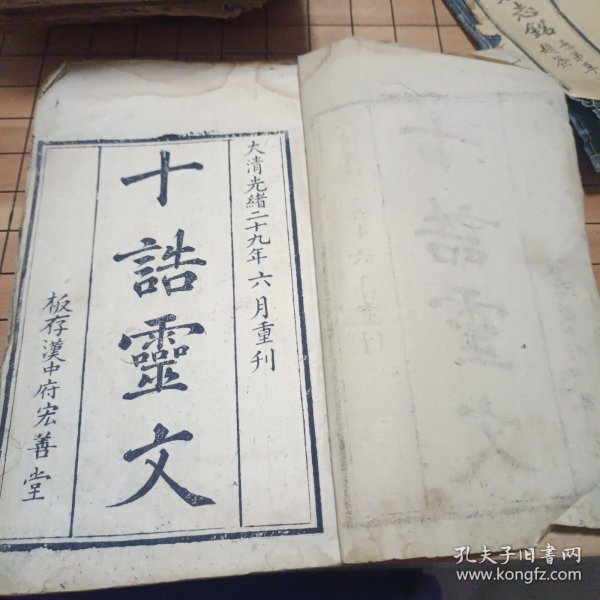 大清光緒二十九年六月重刊
十誥靈文
板存漢中府宏善堂
志銘
孔夫子旧书网
www.kongfz.com